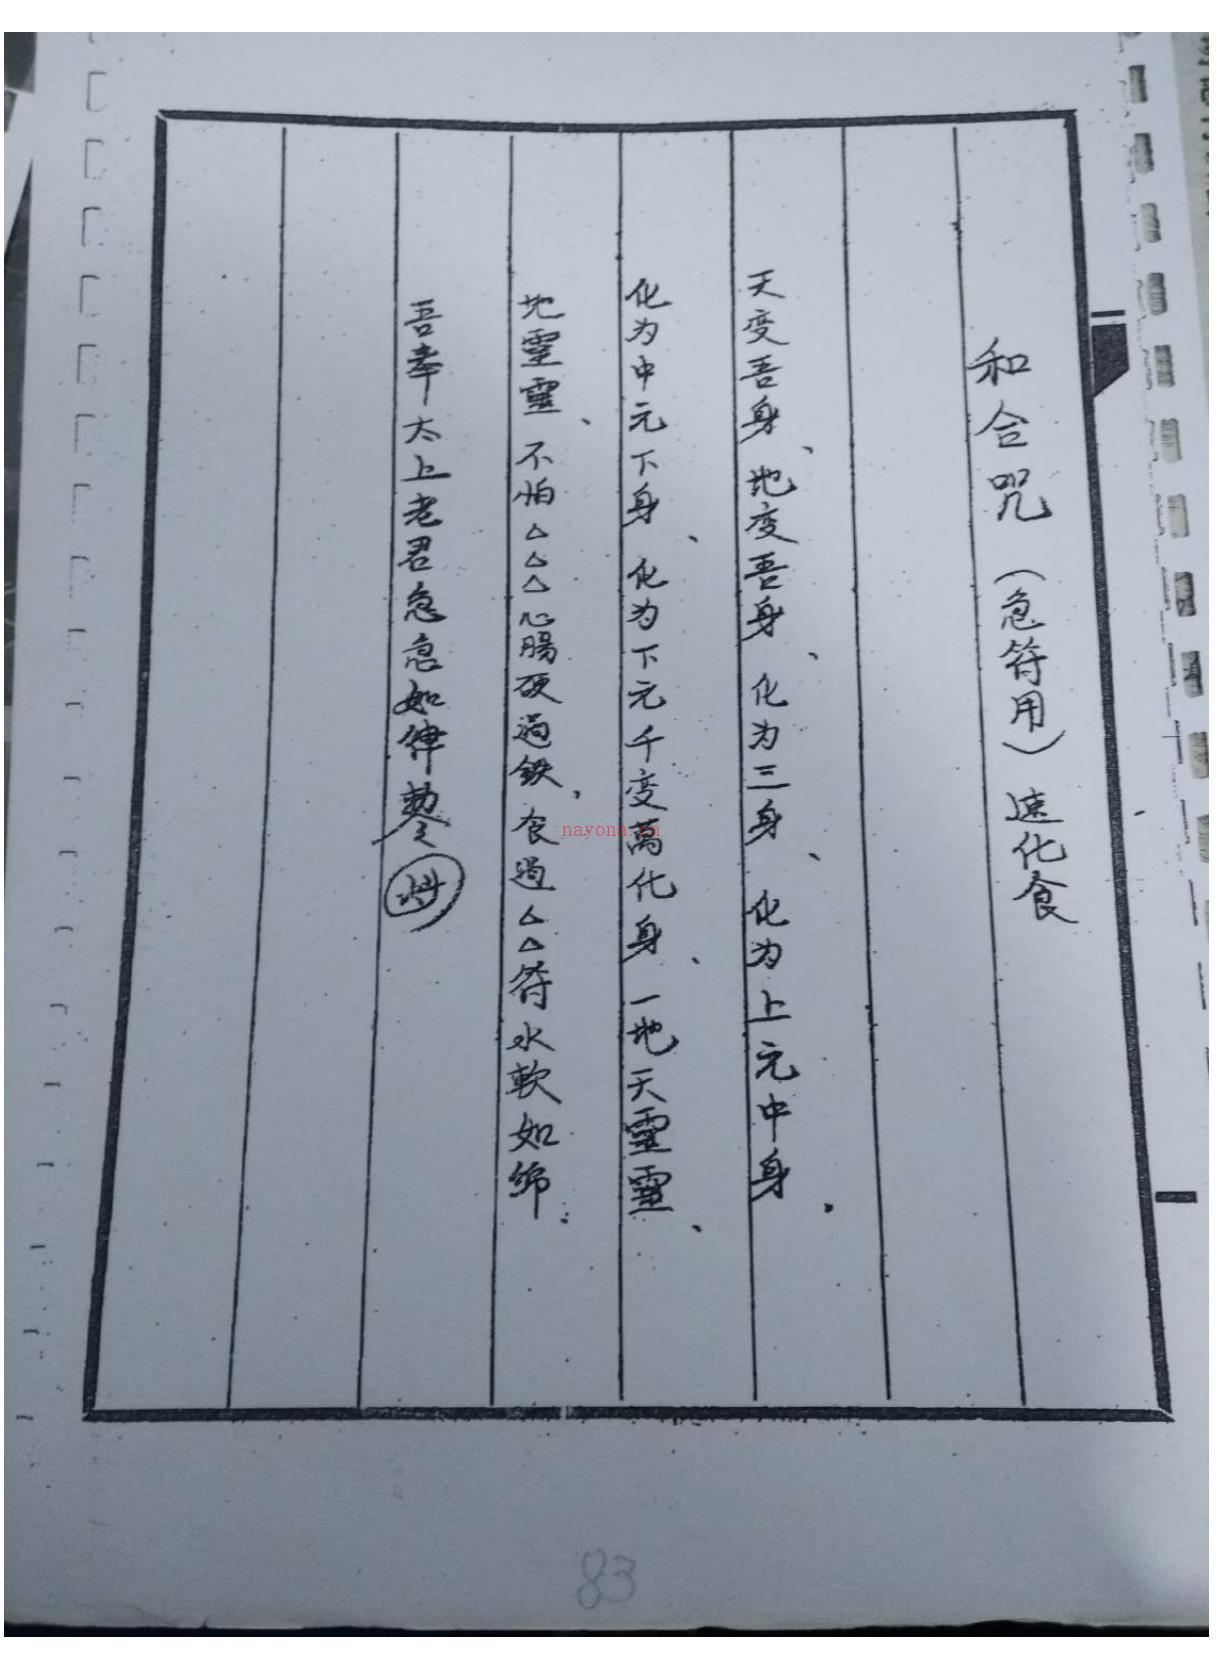 和合咒（急符用）速化食
天变吾身、地变吾身、化为三身、化为上元中身．
化为中元下身、化为下元千变萬化身、一地天靈靈、
地靈靈、不怕△△△心腸硬過鉄、食過△△符水軟如綿．
吾奉太上老君急急如律勅令
nayona.cn
83